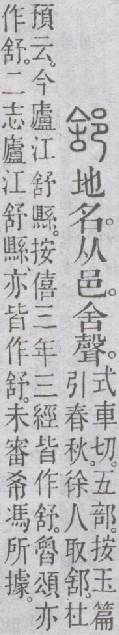 䣄 地名。从邑。舍聲。
式車切。五部。按玉篇
引春秋。徐人取䣄。杜
預云。今廬江舒縣。按僖三年三經皆作舒。魯頌亦
作舒。二志廬江舒縣。亦皆作舒。未審希馮所據。